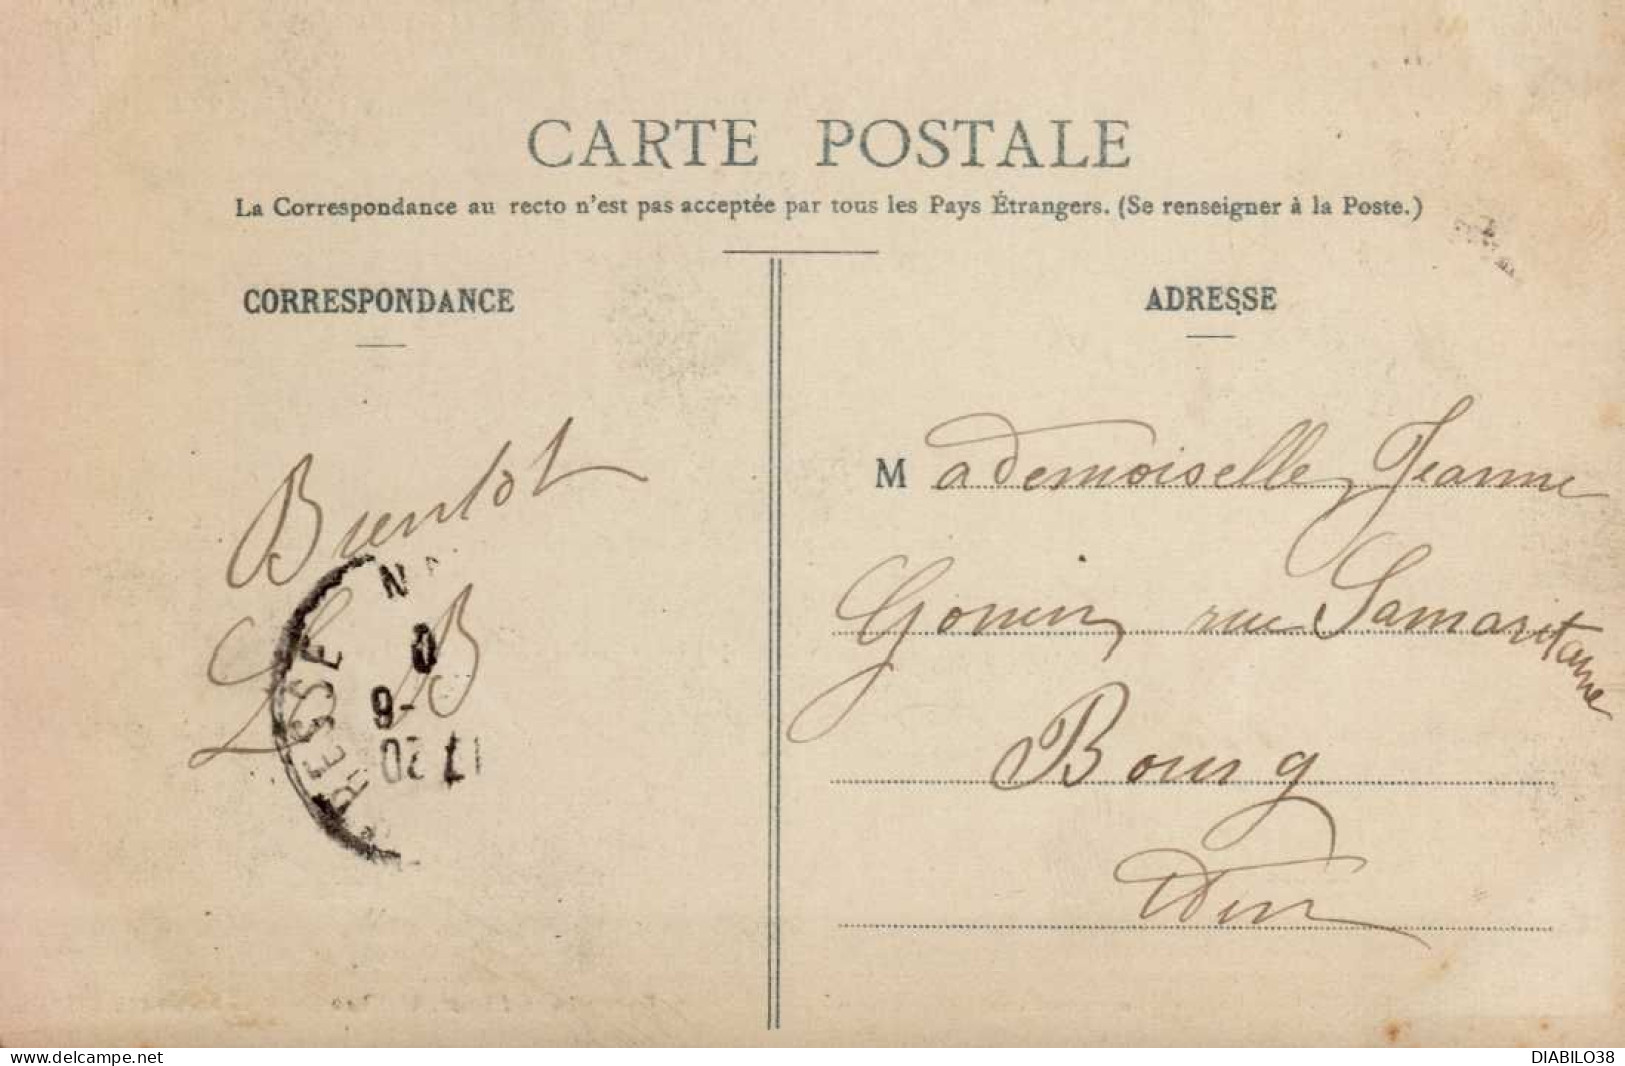 CARTE POSTALE
La Correspondance au recto n'est pas acceptée par tous les Pays Étrangers. (Se renseigner à la Poste.)
CORRESPONDANCE
Bientôt
L B
RESSE
6-
17 20
ADRESSE
Mademoiselle Jeanne
Gonin rue Samaritaine
Bourg
Ain
www.delcampe.net
DIABILO38